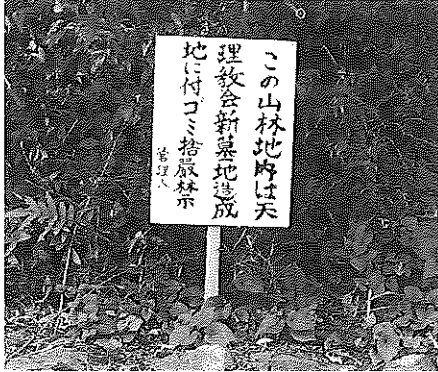 この山林地内は天
理教会新墓地造成
地に付ゴミ捨厳禁示
管理人